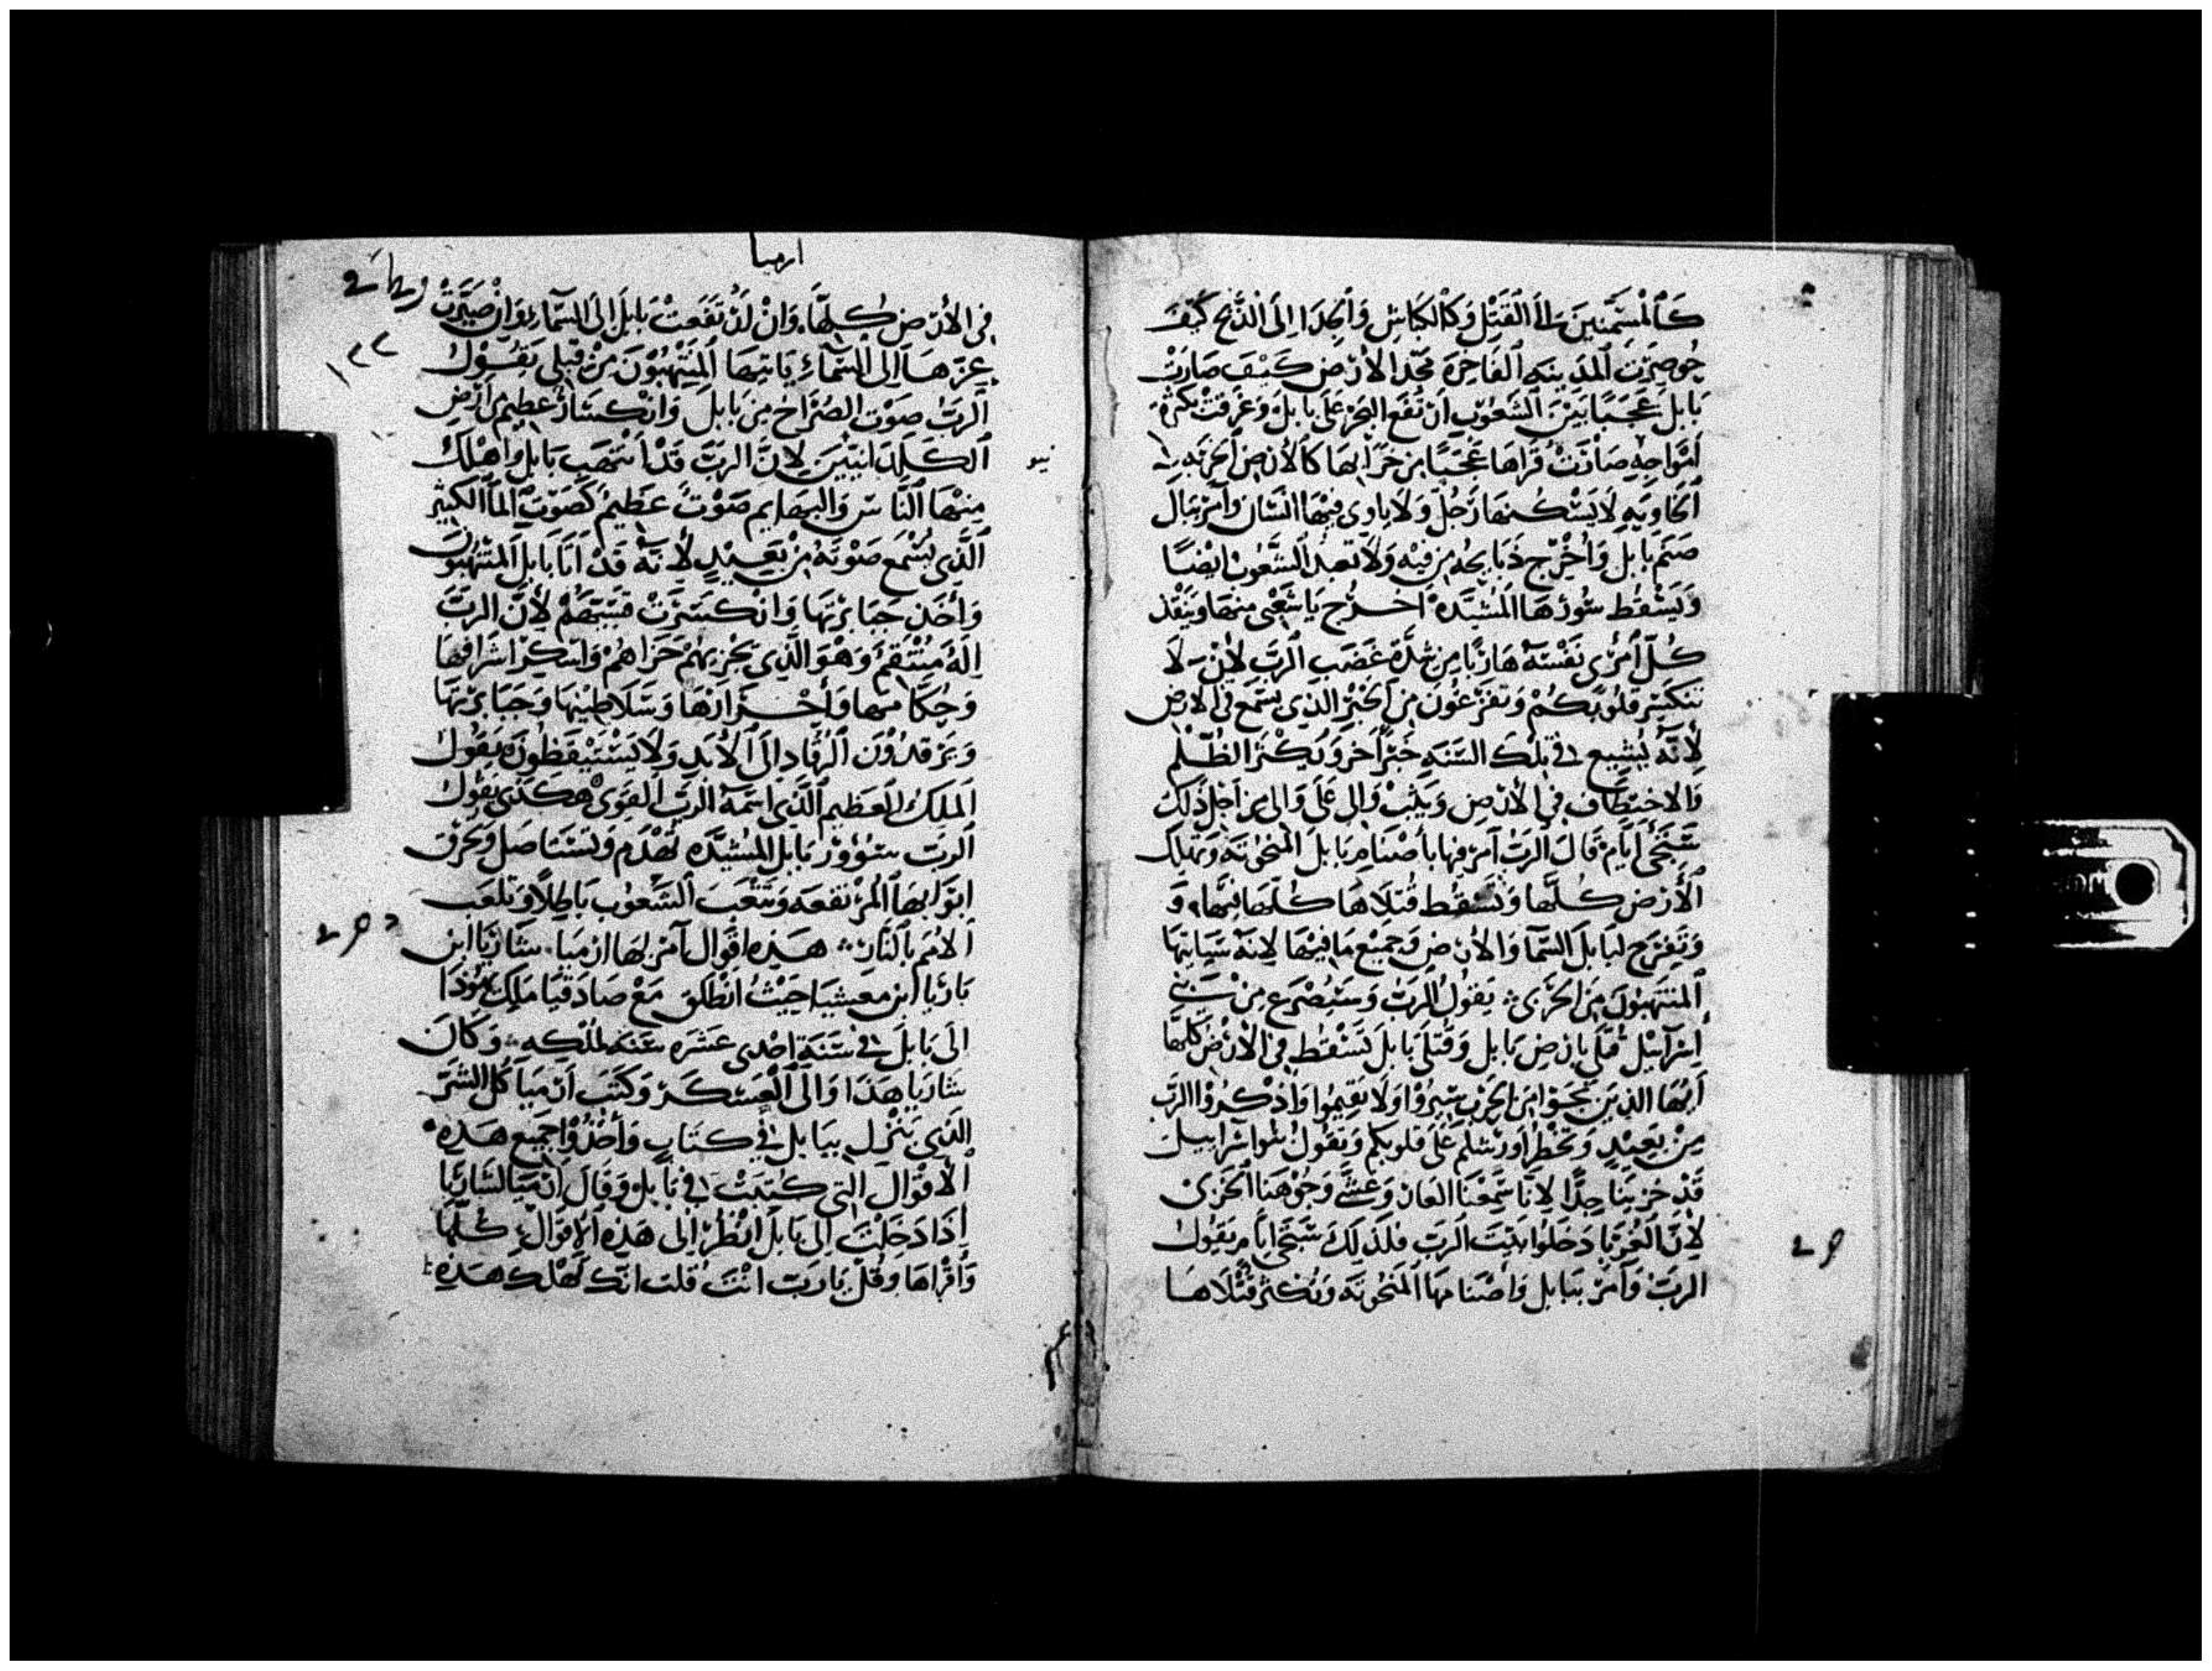 كَالْمُسَمَّنِينَ الى الْقَتْلِ وَكَالْكِبَاشِ وَالْجِدَا اِلَى الذَّبْحِ كَيْفَ
حُوصِرَتِ الْمَدِينَه الْفَاخِرَه مَجْد الاَرْضِ كَيْفَ صَارَتْ
بَابِل عَجَبًا بَيْنَ الشُعُوبِ ارْتَفَعَ الْبَحْرُ عَلَى بَابِلْ وَغَرِقَتْ بِكَثْرَهْ
اَمْوَاجِهِ صَارَتْ قُرَاهَا عَجَبًا مِن خَرَابِهَا كَالاَرْضِ الْخَرِبَه
الْخَاوِيَهِ لاَ يَسْكُنهَا رَجُلٌ وَلاَ يَاوِي فِيْهَا اِنْسَان وَآمُرْ بِبَال
صَنَم بَابِل وَأُخْرِج ذَبَايِحُه مِن فِيْه وَلاَ تعبده الشُّعُوبْ ايضًا
وَيَسْقُط سُورْهَا الْمُشَيَّدَهْ اخرج يَا شَعْبِي مِنهَا وَيَنْقِذ
كُلّ اَمْرِي نَفْسَهُ هَارِبًا مِن شِدَّةِ غَضَب الرَّبِّ لِاَنْ لاَ
تَنكَسِرْ قُلُوبكُمْ وَتَفْزَعُونَ مِن الْخَبَرِ الذِي يُسْمَع فِي الاَرْض
لِأَنَّه يُشِيع فِي تِلْكَ السَّنَه خَبَرٌ آخَر وَيُكْثر الظُّلْم
وَالاخْتِطَاف فِي الاَرْضِ وَيَثِبْ وَالِي عَلَى وَالِي مِن اَجْلِ ذَلِكَ
سَتَجِي اَيَّام قَالَ الرَّبُّ آمر فِيهَا بأصْنَام بَابِل الْمَنْحُوتَه وَتَهْلِك
الأَرْض كُلّهَا وَيَسْقُط قُتلاَهَا كُلّهَا فِيْهَا، وَ
وَتَفْرَح لِبَابِلَ السَّمَا وَالاَرْضِ وَجَمِيْع مَا فِيْهَا لاِنَّه سَيَاتِيْهَا
الْمُنْتَهِبُونَ مِنَ الْجَرْبِي يَقُولُ الرَّبُّ وَسَيُصْرَع مِنْ بَنِي
اِسْرَآئِيْل قَتْلَى بِارْضِ بَابِل وَقَتْلَى بَابِلَ تَسْقُط فِي الاَرْضِ كُلّهَا
اَيّهَا الذِينَ نَجَوْا مِن الْحَرْب سِيْرُوْا وَلاَ تقِيمُوا وَاذْكُرُوْا الرَّبّ
مِنْ بَعِيْدٍ وَتَخْطُر اُورَشَلِم عَلَى قُلُوبكُم وَيَقُولُ بنوا اسْرَاييل
قَدْ خَزِيْنَا جِدًّا لاِنَّا سَمِعْنَا العَارْ وَغَشَّى وُجُوْهَنَا الْخَزِى
لاِنَّ الْغُرَبَا دَخَلُوا بَيْتَ الرَّبِّ فَلِذَلِكَ سَتَجِي اَيَّام يَقُولُ
الرَّبّ وَآمُرْ بِبَابِل وَأَصْنَامِهَا الْمَنْحُوتَه وَتكْثر قُتْلاَهَا
ارميا
فِي الأَرْضِ كُلِّهَا وَاِنْ ارْتَفَعَتْ بَابِل اِلَى السَّمَا وَاِنْ صَيَّرَتْ
عِزّهَا اِلَى السَّمَاءِ يَاتِيْهَا الْمُنْتَهِبُوْنَ مِنْ قِبَلِي يَقُوْلُ
١٢٢
الرَّبُّ صَوْت الصُّرَاخ مِن بَابِل وَانْكِسَارٌ عَظِيم مِن اَرْضِ
الْكَلدَانِيّيْن لاِنَّ الرَّبَّ قَدْ اَنْتَهَبَ بَابِل وَاَهْلَكَ
مِنْهَا النَّاسَ وَالْبَهَايم صَوْتٌ عَظِيمٌ كَصَوْت الْمَا الْكَثِيْر
الَّذِي يُسْمَع صَوْتُهُ مِنْ بَعِيْدٍ لأنَّهُ قَدْ اَتَا بَابِل الْمُنْتَهِبُونَ
وَأُخِذَ جَبَابِرْتهَا وَانْكَسَرَتْ قِسِيّهُمْ لأِنَّ الرَّبَّ
اِلَهُ مُنْتَقِمٌ وَهْوَ الَّذِي يَجْزِيهُمْ جَزَاهُمْ وَاُسْكِرْ اَشْرَافهَا
وَحُكَّامهَا وَأحْزَارَهَا وَسَلاَطِيْنهَا وَجَبَابِرْتهَا
وَيَرْقدُوْن الرُّقَاد اِلَى الأَبَدِ وَلاَ يَسْتَيْقِظُونَ يَقُولُ
الْمَلِكُ الْعَظِيم الَّذِي اسْمُهُ الرَّبّ الْقَوِي هَكَذَى يَقُولُ
الرَّبّ سُوْر بَابِل الْمُشَيَّدَه تُهْدَم وَتُسْتَاصَل وَتُحْرَق
ابْوَابهَا الْمُرْتَفِعَه وَتَتْعَب الشُّعُوب بَاطِلاً وَتَلْعَب
الاُمَم بِالنَّارْ هَذِه اقْوَال آمر بِهَا ارْمِيَا سَارَيَا ابْن
بَارِيَا ابن مَعَشِيَا حَيْثُ انْطَلَقَ مَعَ صَادَقِيَا مَلِك يَهُوْذَا
اِلَى بَابِلَ فِي سَنَة احْدَى عَشَرَه سَنَه لِمُلْكِهِ وَكَانَ
سَارَيَا هَذَا وَالِى الْعَسْكَر وَكَتَبَ اَرْمِيَا كُلّ الشَّرّ
الَّذِي يَنْزِل بِبَابِل فِي كِتَابٍ وَأَخَذُوْا جَمِيْع هَذِه
الأَقْوَال الَّتِي كُتِبَتْ فِي بَابِل وَقَالَ اَرْمِيَا لِسَارَيَا
اِذَا دَخَلْتَ اِلَى بَابِل انْظُرْ اِلَى هَذِه الاَقْوَالْ كُلّهَا
وَأَقْرَاهَا وَقُلْ يَا رَبّ اَنْتَ قُلت انَّك تهْلك هَذِه